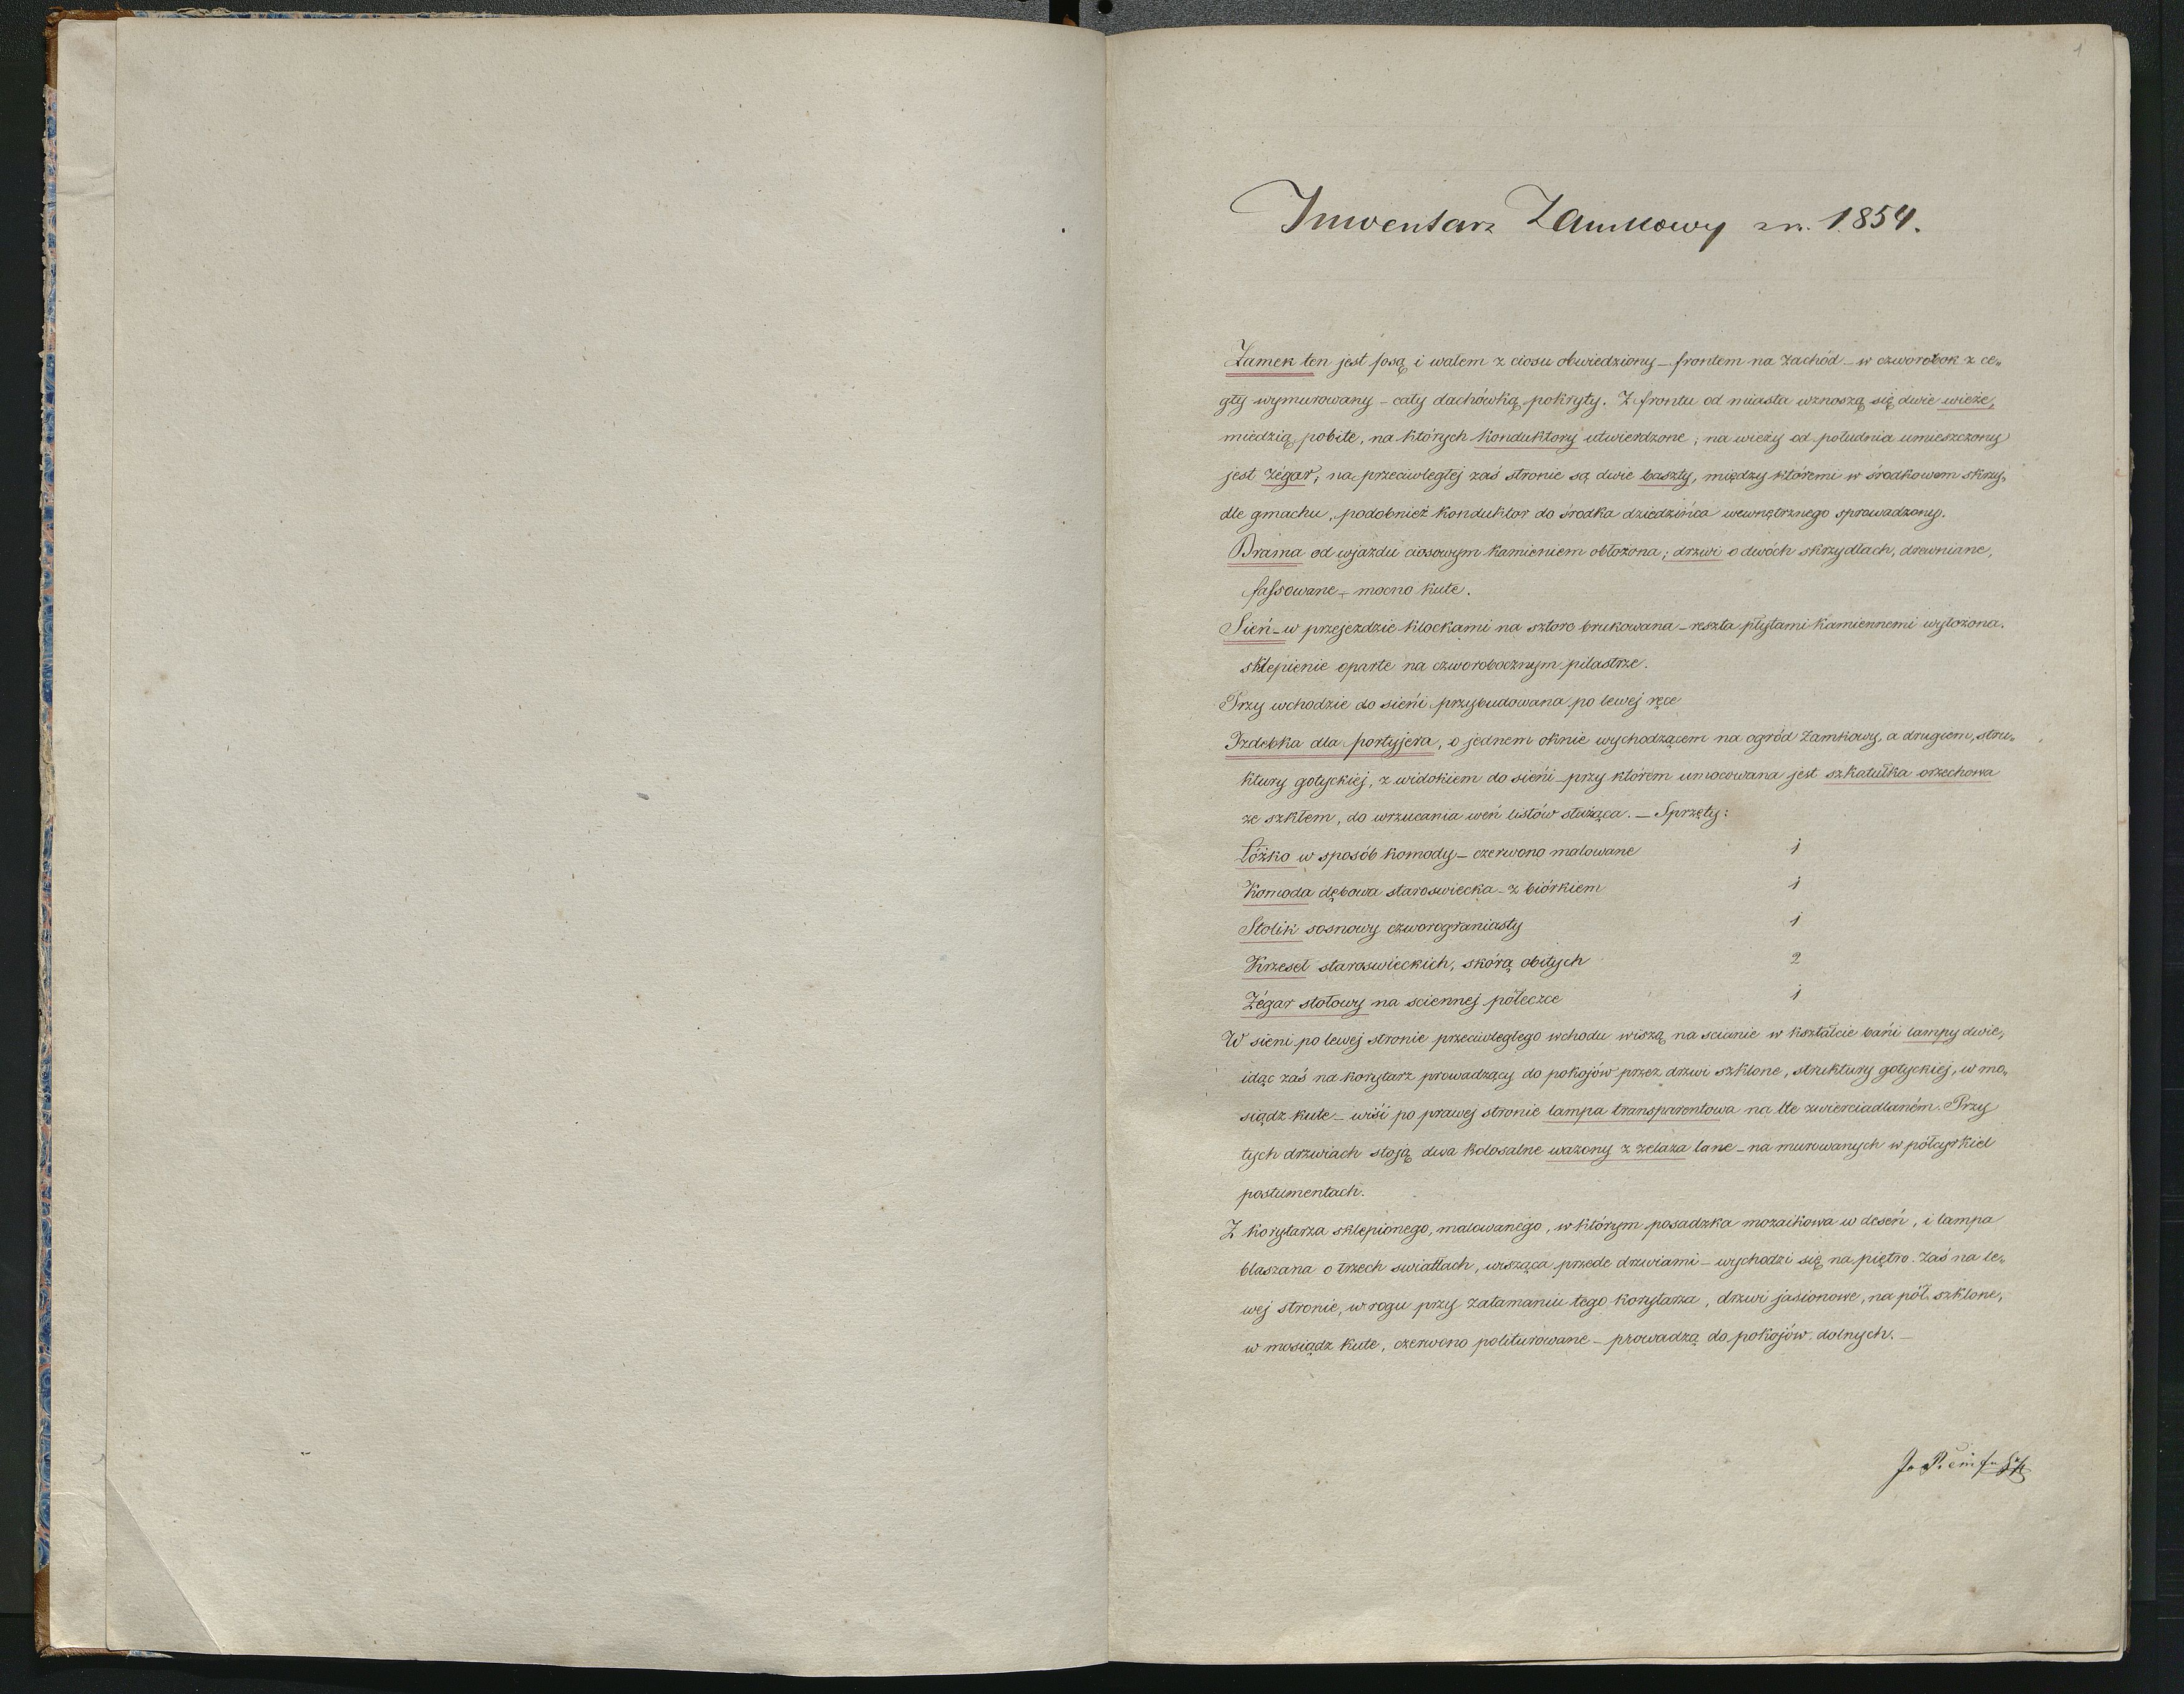 1
Inwentarz Zamkowy z r. 1854.
Zamek ten jest fosą i wałem z ciosu obwiedziony – frontem na zachód – w czworobok z ce„
gły wymurowany – cały dachówką pokryty. Z frontu od miasta wznoszą się dwie wieże,
miedzią pobite, na których konduktory utwierdzone; na wieży od południa umieszczony
jest zégar, na przeciwległej zaś stronie są dwie baszty, między któremi w środkowem skrzy„
dle gmachu, podobnież konduktor do środka dziedzińca wewnętrznego sprowadzony.
Brama od wjazdu ciosowym kamieniem obłożona; drzwi o dwóch skrzydłach, drewniane,
fassowane – mocno kute.
Sień – w przejezdzie klockami na sztorc brukowana – reszta płytami kamiennemi wyłożona.
sklepienie oparte na czworobocznym pilastrze.
Przy wchodzie do sieńi przybudowana po lewej ręce
Izdebka dla portyjera, o jednem oknie wychodzącem na ogród Zamkowy, a drugiem, stru„
ktury gotyckiej, z widokiem do sieńi – przy którém umocowana jest szkatułka orzechowa
ze szkłem, do wrzucania weń listów służąca. – Sprzęty:
Łóżko w sposób komody – czerwono malowane 1
Komoda dębowa staroswiecka – z biórkiem 1
Stolik sosnowy czworograniasty 1
Krzeseł staroswieckich, skórą obitych 2
Zégar stołowy na sciennej półeczce 1
W sieni po lewej stronie przeciwległego wchodu wiszą na scianie w kształcie bańi lampy dwie,
idąc zaś na korytarz prowadzący do pokojów przez drzwi szklone, struktury gotyckiej, w mo„
siądz kute – wiśi po prawej stronie lampa transparentowa na tle zwierciadlaném. Przy
tych drzwiach stoją dwa kolosalne wazony z zelaza lane – na murowanych w półcyrkiel
postumentach.
Z korytarza sklepionego, malowanégo, w którym posadzka mozaikowa w deseń, i lampa
blaszana o trzech swiatłach, wisząca przede drzwiami – wychodzi się na piętro. Zaś na le„
wej stronie, w rogu przy załamaniu tego korytarza, drzwi jasionowe, na pół szklone,
w mosiądz kute, czerwono politurowane – prowadzą do pokojów dolnych. –